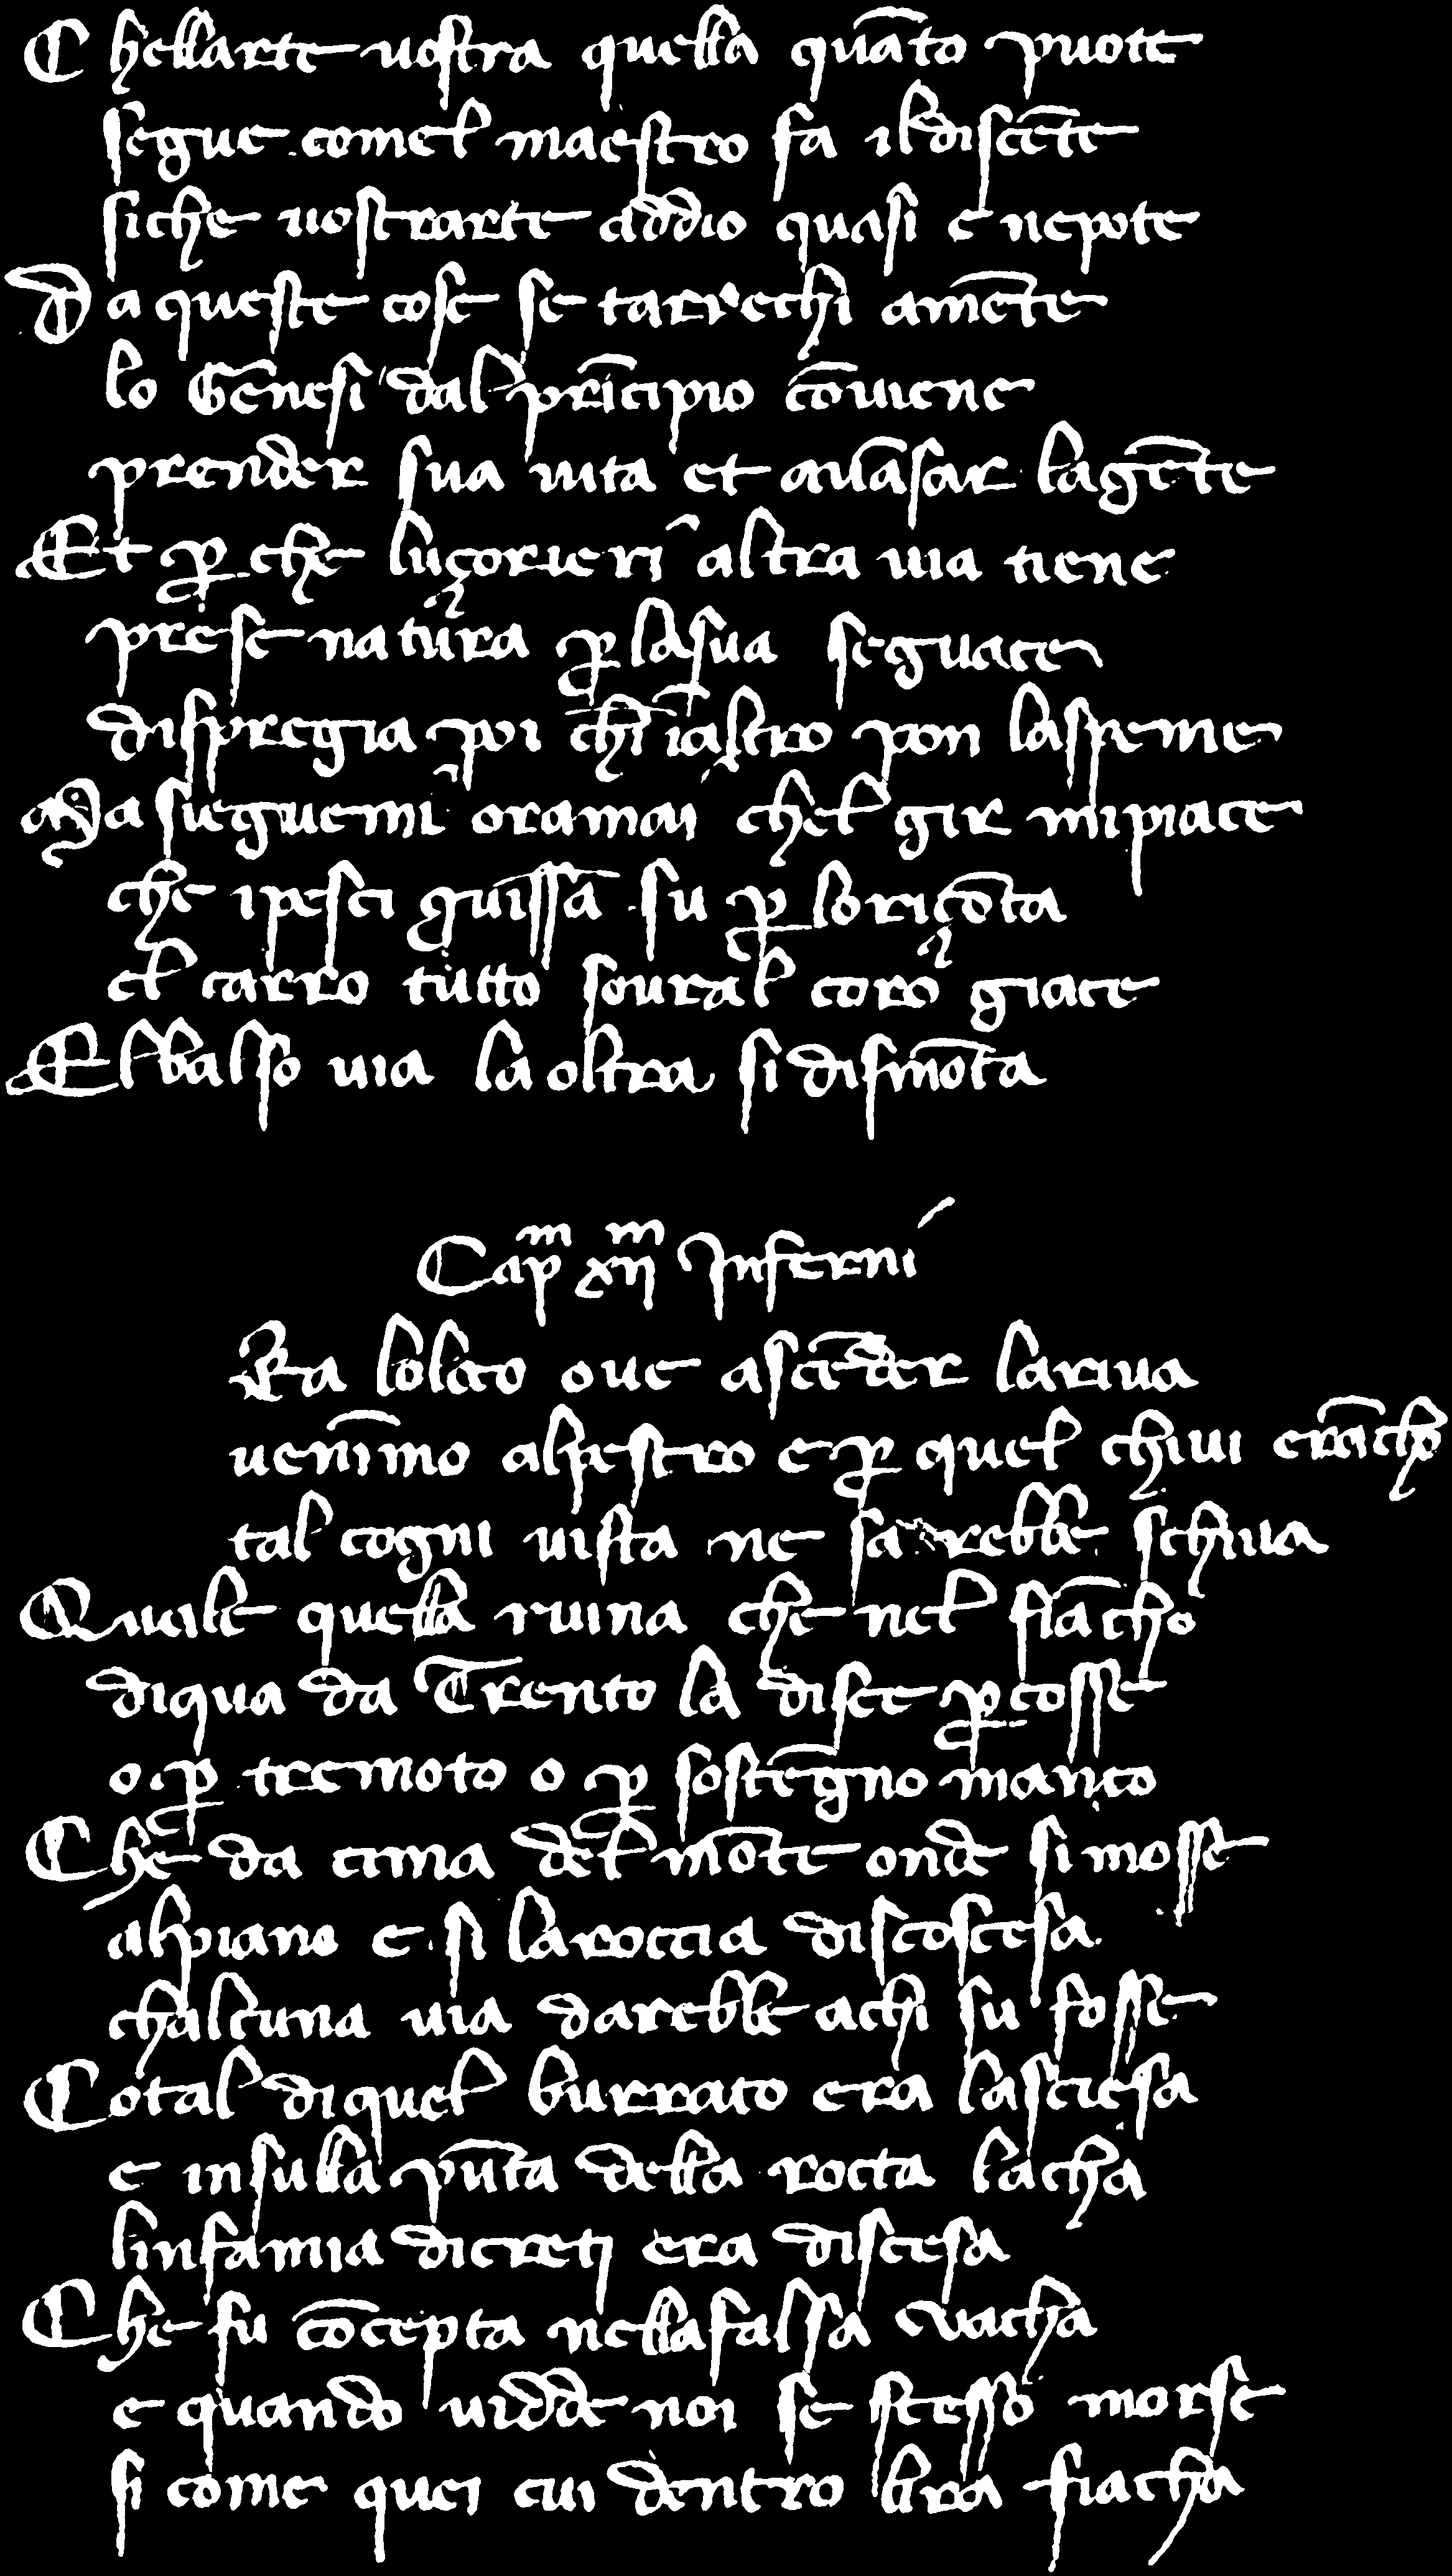 C hellarte uostra quella quãto puote
segue comel maestro fa ildiscẽte
siche uostrarte addio quasi e nepote
D a queste cose se tarrechi amẽte
lo Gẽnesi dal prĩcipio cõuiene
prender sua uita et auãsar lagẽte
Et ꝑ che luçorieri altra uia tiene
prese natura ꝑ lasua seguace
dispregia poi chĩ ĩaltro pon laspeme
Ma sieguemi oramai chel gir mipiace
che ipesci guissã su ꝑ loriçõta
el carro tutto soural coro giace
El balso uia la oltra si dismõta
Capᵐ xijᵐ Inferni
Era loloco oue ascẽder lariua
uenĩmo alpestro e ꝑ quel chiui erãcho
tal cogni uista ne sarebbe schiua
Quale quella ruina che nel fiãcho
diqua da Trento la disce ꝑcosse
o ꝑ tremoto o ꝑ sostẽgno manco
Che da cima del mõte onde si mosse
alpiano e si laroccia discoscesa
chalcuna uia darebbe achi su fosse
Cotal diquel burrato era lasciesa
e insulla pũta della rocta lacha
linfamia dicreti era discesa
Che fu cõcepta nellafalsa uacha
e quando uidde noi se stesso morse
si come quei cui dentro lira fiacha